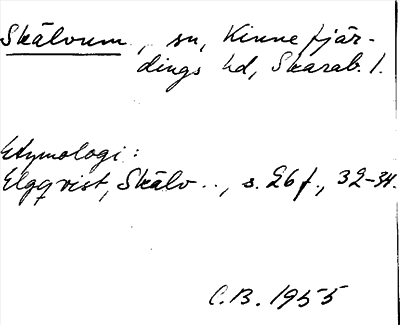 Skälvum, sn, Kinnefjär-
dings hd, Skarab. l.
Etymologi:
Elgqvist, Skälv.., s. 26 f., 32-34.
C.B. 1955